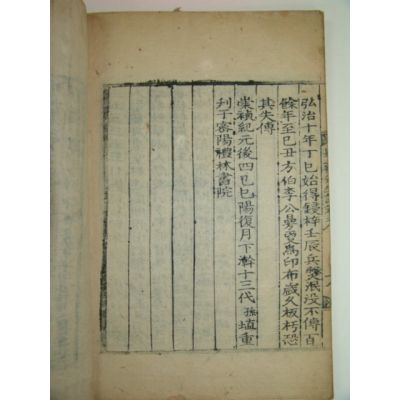 弘治十年丁巳始得鋟梓壬辰兵燹泯没不傳百
餘年至己丑方伯李公夢更爲印布歲久板朽恐
其失傳
崇禎紀元後四己巳陽復月下澣十三代孫埴重
刊于密陽禮林書院